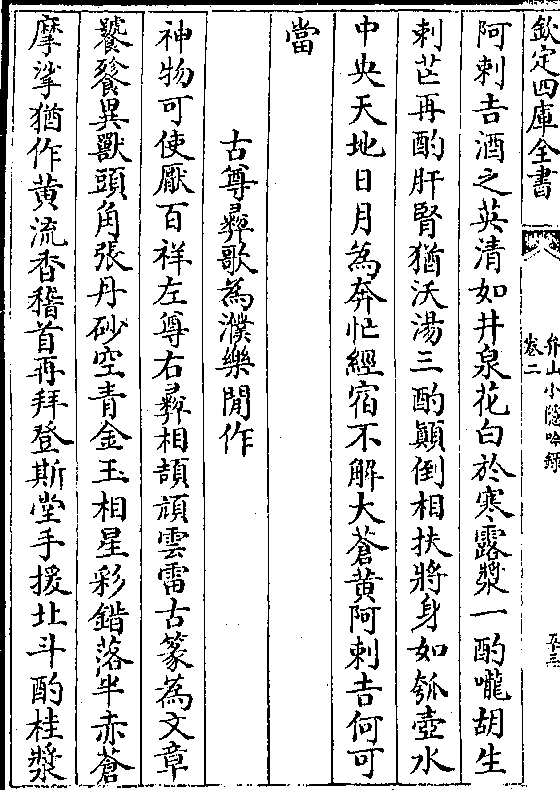 欽定四庫全書
弁山小隱吟錄
卷二
阿剌吉酒之英清如井泉花白於寒露漿一酌嚨胡生
刺芒再酌肝腎猶沃湯三酌顛倒相扶將身如瓠壺水
中央天地日月為奔忙經宿不解大蒼黄阿剌吉何可
當
古尊彛歌為濮樂閒作
神物可使厭百祥左尊右彛相頡頏雲雷古篆為文章
饕餮異獸頭角張丹砂空青金玉相星彩錯落半赤蒼
摩挲猶作黄流香稽首再拜登斯堂手援北斗酌桂漿